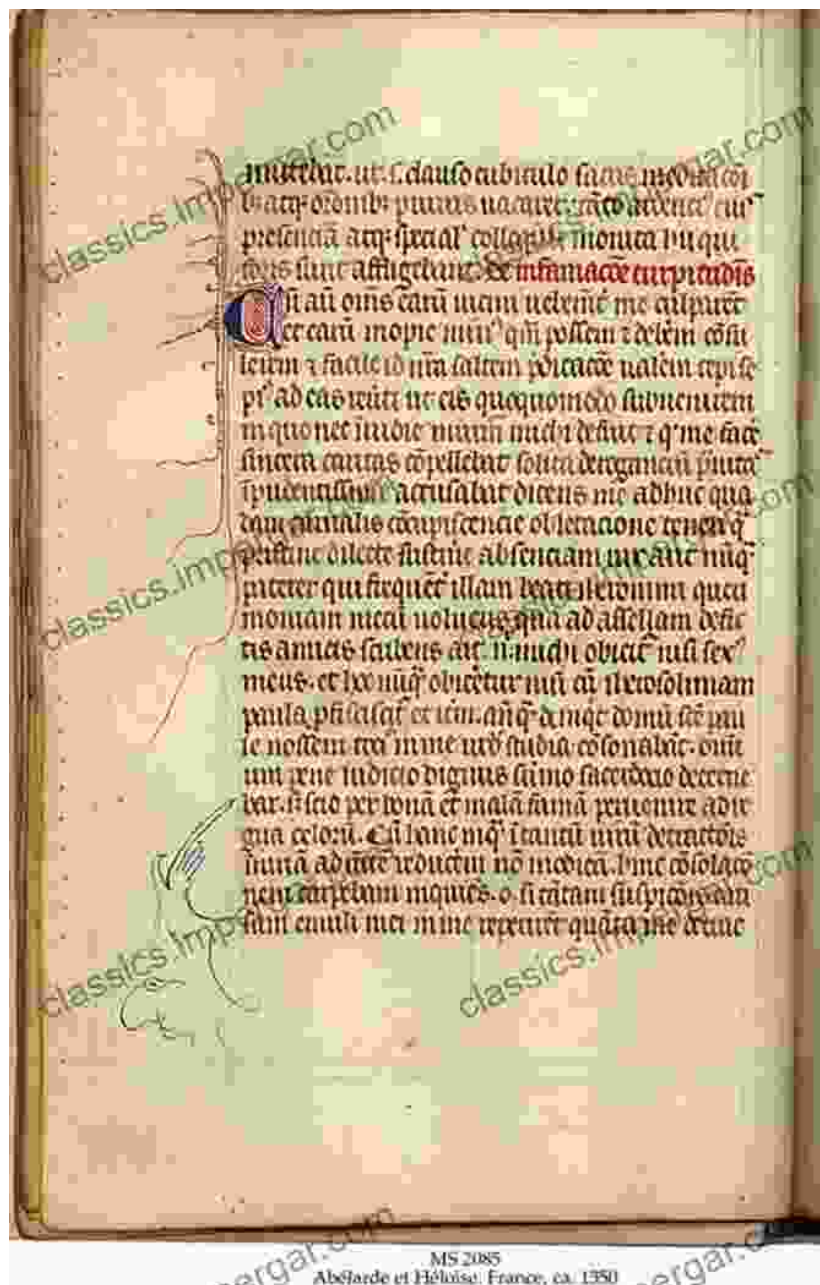 mittebat. ut. s. clauso cubiculo sacris medita coi
b; atq; orōnib; purius uacaret. tāto ardenci' eiu'
presenciā atq; spiecial' colloq monita hii qui
foris sunt affligebant. De infamacōe turpitudīs
Cū aū om̄s earū uicini uehemēt' me culparēt
qr earū inopie min' q̄m possem ⁊ debēm cōsu
lerem ⁊ facile id nr̄a saltem p̄dicacōe ualēm cepi se
pi' ad eas reūti ut eis quoquomodo subuenirem
in quo nec īuidie murm̄ michi defuit ⁊ q' me facē
sincera caritas cōpellebat solita derogancīū p̄uita'
īpudentissime accusabat dicens me adhuc qua
dam carnalis cōcupiscencie oblectacione teneri q'
pristine dilecte sustīne absenciam uix aut nūq'
paterer qui frequēt' illam beati iheronimi queri
moniam mecū uoluens qua ad assellam de fic
tis amicis scribens ait. n̄. michi obicit' nisi sex'
meus. et hoc nūq̄ obicētur nisi cū iherosolimam
paula pficiscit' et itēm. añq̄ domū scē pau
le nossem toci' in me urb' studia cōsonabāt. oīni
um pene iudicio dignus sūmo sacerdocio decerne
bar. s; scio per bonā et malā famā peruenire ad re
gna celorū. Cū hanc inq̄ ī tantū uirū detractōis
iniuriā ad mētē reducerem nō modicā hinc cōsolacō
nem carpebam inquiens. o. si tātam suspicōis cau
sam emuli mei in me reperirēt quāta me detrac
MS 2085
Abélarde et Héloïse. France, ca. 1350
classics.impergar.com